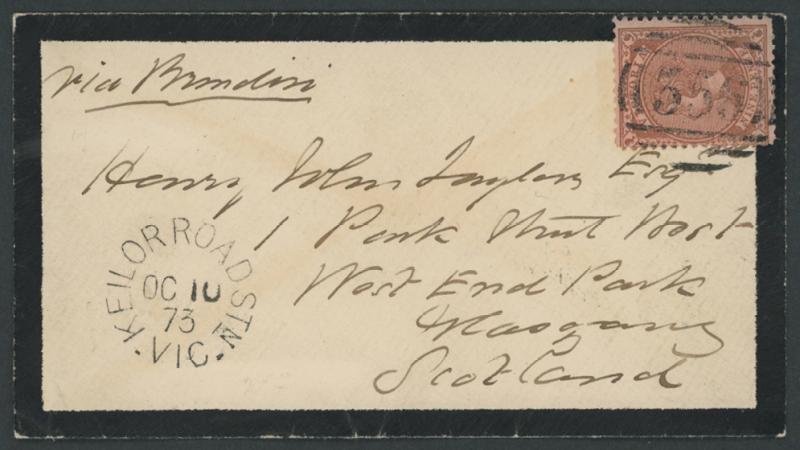 via Brindisi
Henry John Taylor Esq
1 Park Street West
West End Park
Glasgow
Scotland
KEILOR ROAD STN
OC 10
73
VIC
VICTORIA